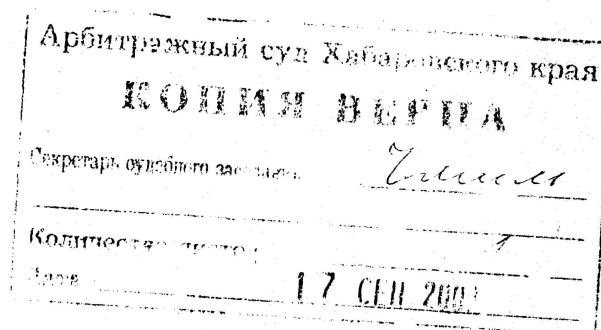 Арбитражный суд Хабаровского края
КОПИЯ ВЕРНА
Секретарь судебного заседания
Количество листов: 1
Дата 17 СЕН